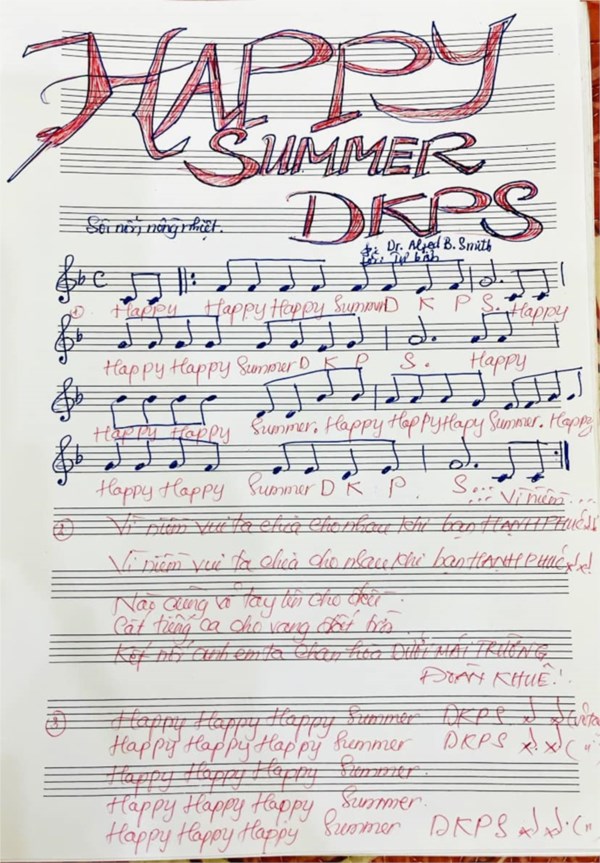 HAPPY
SUMMER
DKPS
Sôi nổi, nồng nhiệt.
Dr. Alfred B. Smith
C
① Happy Happy Happy Summer D K P S. Happy
Happy Happy Summer D K P S. Happy
Happy Happy Summer. Happy Happy Hapy Summer. Happy
Happy Happy Summer D K P. S... Vì niềm...
② Vì niềm vui ta chia cho nhau khi bạn HẠNH PHÚC
Vì niềm vui ta chia cho nhau khi bạn HẠNH PHÚC
Nào cùng vỗ tay lên cho đều
Cất tiếng ca cho vang đất trời
Kết nối anh em ta chan hòa DƯỚI MÁI TRƯỜNG
ĐOÀN KHUÊ!
③ Happy Happy Happy Summer DKPS
Happy Happy Happy Summer DKPS
Happy Happy Happy Summer.
Happy Happy Happy Summer.
Happy Happy Happy Summer DKPS